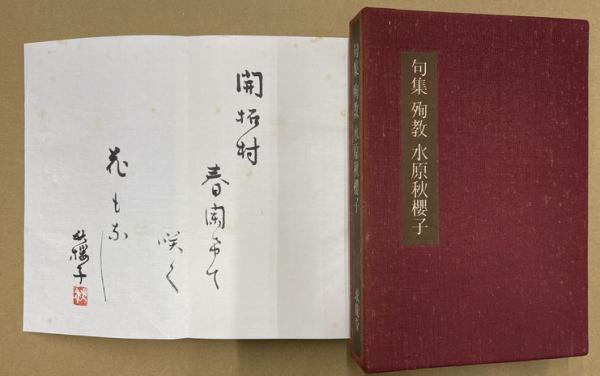 句集 殉教 水原秋櫻子
句集 殉教 水原秋櫻子
求龍堂
開拓村
春闌けて
咲く
花もなし
秋櫻子